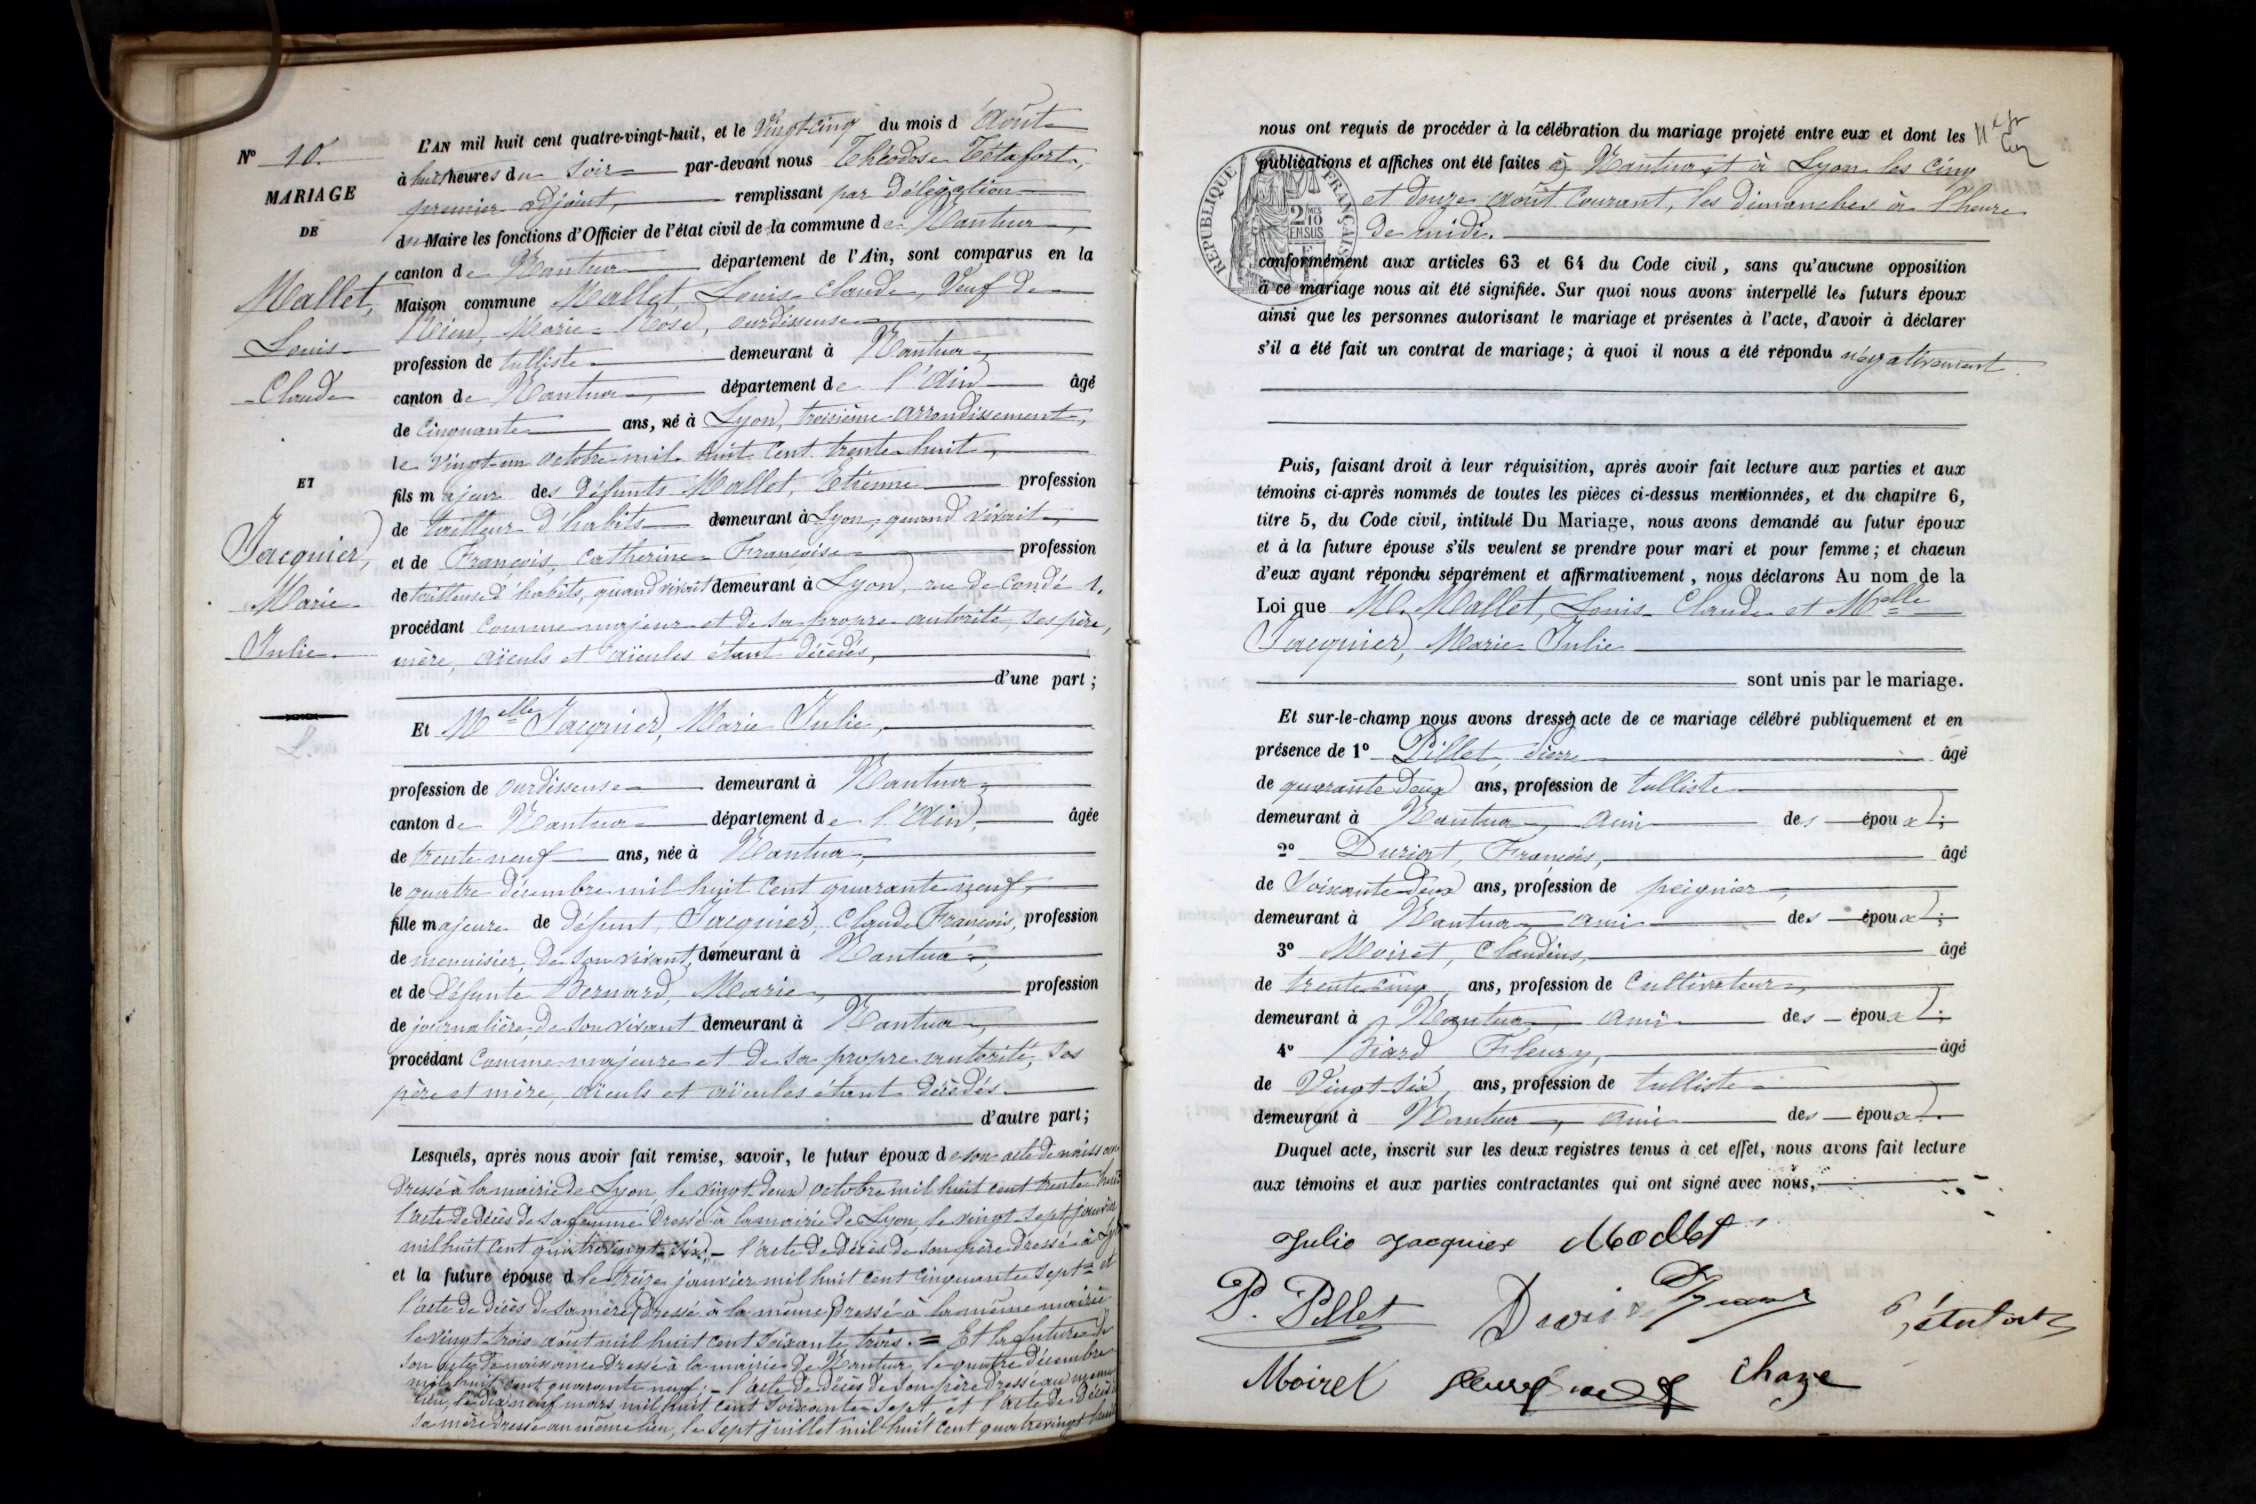 N° 10.
MARIAGE
DE
Mallet,
Louis
Claude
ET
Jacquier,
Marie
Julie
L'AN mil huit cent quatre-vingt-huit, et le Vingt-cinq du mois d'Août
à huit heures du Soir par-devant nous Théodose Tétafort,
premier adjoint, remplissant par délégation
du Maire les fonctions d'Officier de l'état civil de la commune de Nantua,
canton de Nantua département de l'Ain, sont comparus en la
Maison commune Mallet, Louis-Claude, Veuf de
Marie-Rose, ourdisseuse
profession de tulliste demeurant à Nantua,
canton de Nantua, département de l'Ain âgé
de Cinquante ans, né à Lyon, troisième arrondissement,
le vingt-un octobre mil huit cent trente-huit,
fils majeur des défunts Mallet, Etienne profession
de tailleur d'habits demeurant à Lyon, quand vivait,
et de François, Catherine Françoise profession
de tailleuse d'habits, quand vivait demeurant à Lyon, rue de Condé 1.
procédant comme majeur et de sa propre autorité, ses père,
mère, aïeuls et aïeules étant décédés,
d'une part;
Et Melle Jacquier, Marie Julie,
profession de ourdisseuse demeurant à Nantua,
canton de Nantua département de l'Ain, âgée
de trente-neuf ans, née à Nantua,
le quatre décembre mil huit cent quarante neuf,
fille majeure de défunt Jacquier, Claude François, profession
de menuisier, de son vivant, demeurant à Nantua,
et de défunte Bernard, Marie, profession
de journalière, de son vivant demeurant à Nantua,
procédant comme majeure et de sa propre autorité, ses
père et mère, aïeuls et aïeules étant décédés.
d'autre part;
Lesquels, après nous avoir fait remise, savoir, le futur époux de son acte de naissance
dressé à la mairie de Lyon, le vingt-deux octobre mil huit cent trente-huit
l'acte de décès de sa femme dressé à la mairie de Lyon, le vingt-sept janvier
mil huit cent quatre-vingt-six, - l'acte de décès de son père dressé à Lyon
et la future épouse d le treize janvier mil huit cent cinquante-sept et
l'acte de décès de sa mère, dressé à la même dressé à la même mairie
le vingt-trois août mil huit cent soixante trois. = Et la future de
son acte de naissance dressé à la mairie de Nantua, le quatre décembre
mil huit cent quarante neuf; - l'acte de décès de son père dressé au même
lieu, le dix-neuf mars mil huit cent soixante-sept et l'acte de décès de
sa mère dressé au même lieu, le sept juillet mil huit cent quatre-vingt-huit
nous ont requis de procéder à la célébration du mariage projeté entre eux et dont les
publications et affiches ont été faites à Nantua et à Lyon les cinq
et douze août courant, les dimanches à l'heure
de midi.
RÉPUBLIQUE FRANÇAISE
2 MES
10
EN SUS
conformément aux articles 63 et 64 du Code civil, sans qu'aucune opposition
à ce mariage nous ait été signifiée. Sur quoi nous avons interpellé les futurs époux
ainsi que les personnes autorisant le mariage et présentes à l'acte, d'avoir à déclarer
s'il a été fait un contrat de mariage; à quoi il nous a été répondu négativement.
Puis, faisant droit à leur réquisition, après avoir fait lecture aux parties et aux
témoins ci-après nommés de toutes les pièces ci-dessus mentionnées, et du chapitre 6,
titre 5, du Code civil, intitulé Du Mariage, nous avons demandé au futur époux
et à la future épouse s'ils veulent se prendre pour mari et pour femme; et chacun
d'eux ayant répondu séparément et affirmativement, nous déclarons Au nom de la
Loi que M. Mallet, Louis-Claude et Melle
Jacquier, Marie Julie
sont unis par le mariage.
Et sur-le-champ nous avons dressé acte de ce mariage célébré publiquement et en
présence de 1° Pillet, Pierre âgé
de quarante-deux ans, profession de tulliste
demeurant à Nantua, ami des époux;
2° Duriat, François, âgé
de soixante-deux ans, profession de peignier,
demeurant à Nantua, ami des époux;
3° Moiret, Claudius, âgé
de trente-cinq ans, profession de Cultivateur,
demeurant à Nantua, ami des époux;
4° Biard Fleury, âgé
de Vingt-six ans, profession de tulliste
demeurant à Nantua, ami des époux.
Duquel acte, inscrit sur les deux registres tenus à cet effet, nous avons fait lecture
aux témoins et aux parties contractantes qui ont signé avec nous,
Julie Jacquier Mallet
P. Pillet
Tétafort
Moiret Chaze